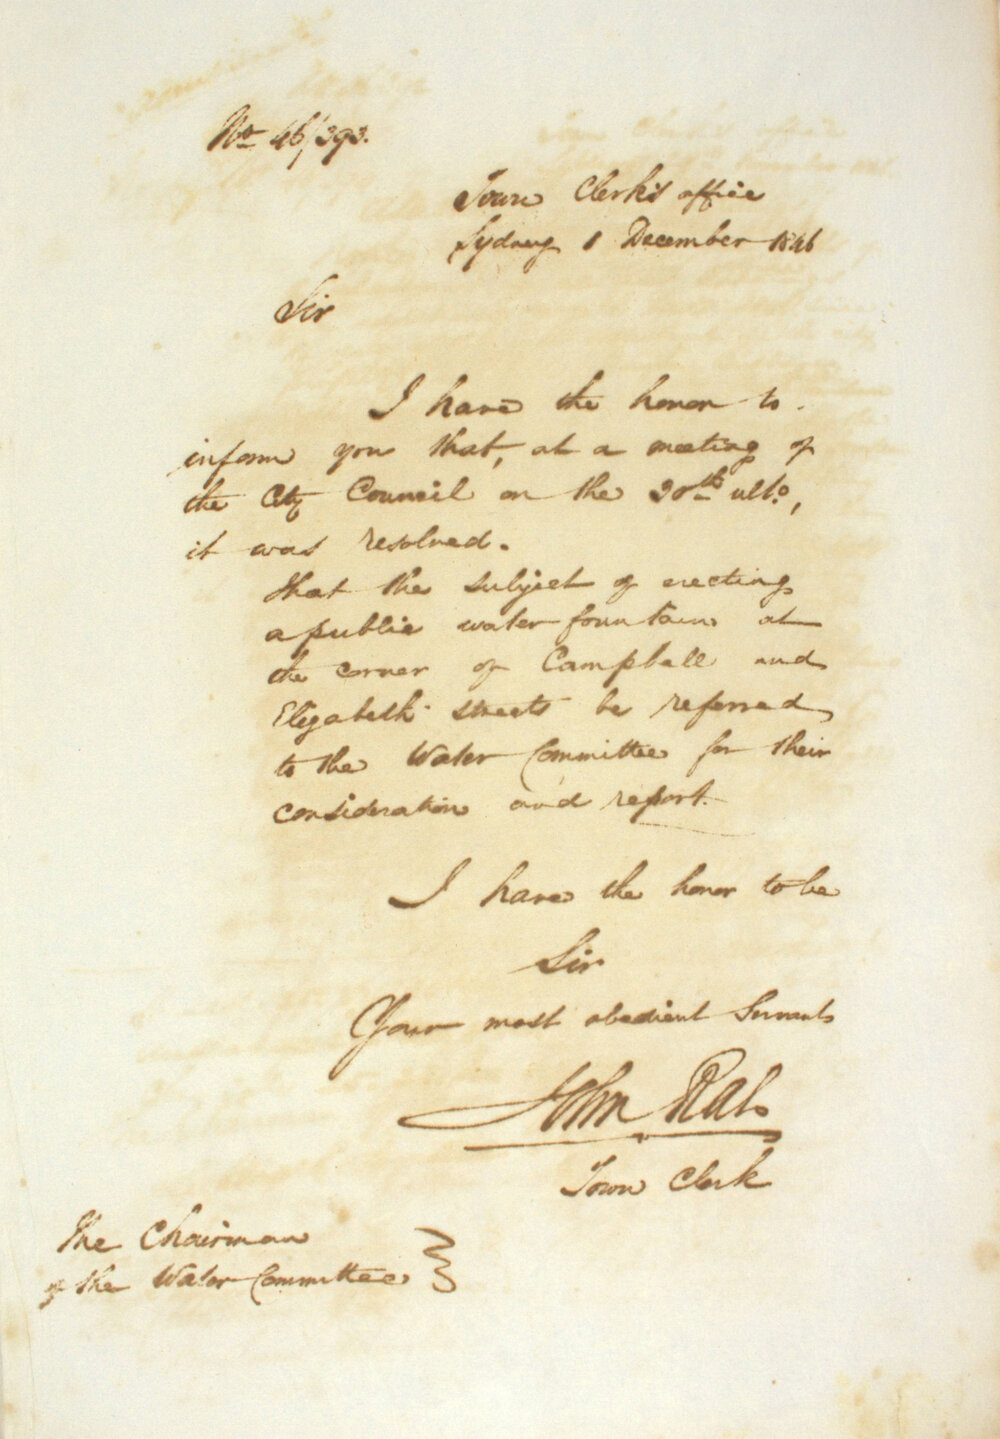 No 46/393.
Town Clerk's office
Sydney 1 December 1846
Sir
I have the honor to
inform you that, at a meeting of
the City Council on the 30th ulto,
it was resolved.
that the subject of erecting
a public water fountain at
the corner of Campbell and
Elizabeth streets be referred
to the Water Committee for their
consideration and report.
I have the honor to be
Sir
Your most obedient Servant
John Rae
Town Clerk
The Chairman
of the Water Committee